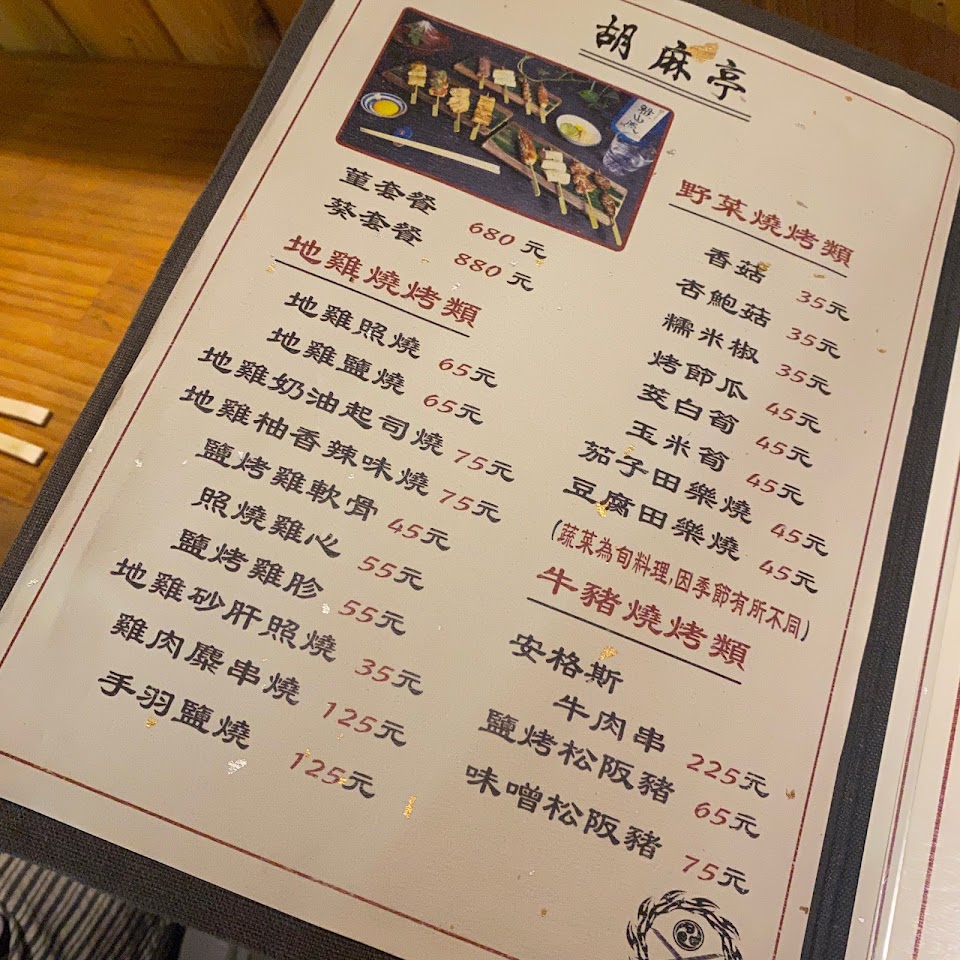 胡麻亭
雅山流
菫套餐 680元
葵套餐 880元
地雞燒烤類
地雞照燒 65元
地雞鹽燒 65元
地雞奶油起司燒 75元
地雞柚香辣味燒 75元
鹽烤雞軟骨 45元
照燒雞心 55元
鹽烤雞胗 55元
地雞砂肝照燒 35元
雞肉麋串燒 125元
手羽鹽燒 125元
野菜燒烤類
香菇 35元
杏鮑菇 35元
糯米椒 35元
烤節瓜 45元
茭白筍 45元
玉米筍 45元
茄子田樂燒 45元
豆腐田樂燒 45元
(蔬菜為旬料理,因季節有所不同)
牛豬燒烤類
安格斯
牛肉串 225元
鹽烤松阪豬 65元
味噌松阪豬 75元